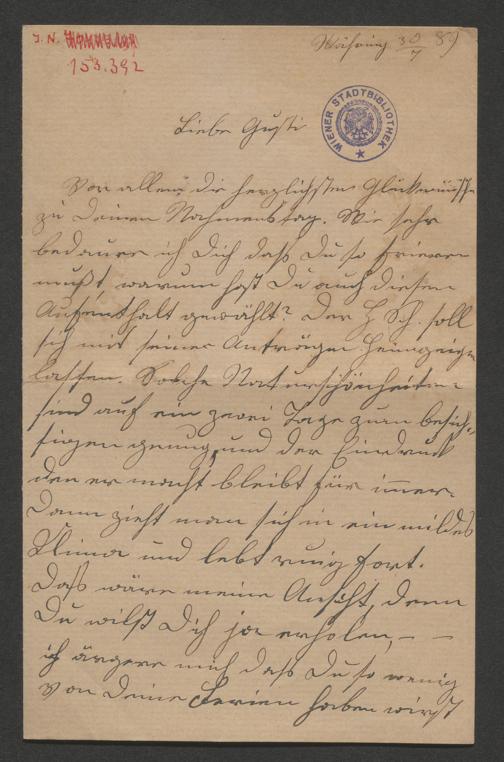 J. N.
153.392
Währing 30/7 89
WIENER STADTBIBLIOTHEK
Liebe Gusti
Von allen die herzlichsten Glückwünsche
zu Deinen Nahmenstag. Wie sehr
bedaure ich Dich daß Du so frieren
mußt, warum hast Du auch diesen
Aufenthalt gewählt? Der H Sch. soll
sich mit seiner Anträgen heimgeigen
lassen. Solche Naturschönheiten
sind auf ein zwei Tage zum besich-
tigen genug, und der Eindruck
den er macht bleibt für immer.
Dann zieht man sich in ein mildes
Klima und lebt ruig fort.
Daß wäre meine Ansicht, denn
Du willst Dich ja erholen, – –
ich ärgere mich daß Du so wenig
von Deine Ferien haben wirst